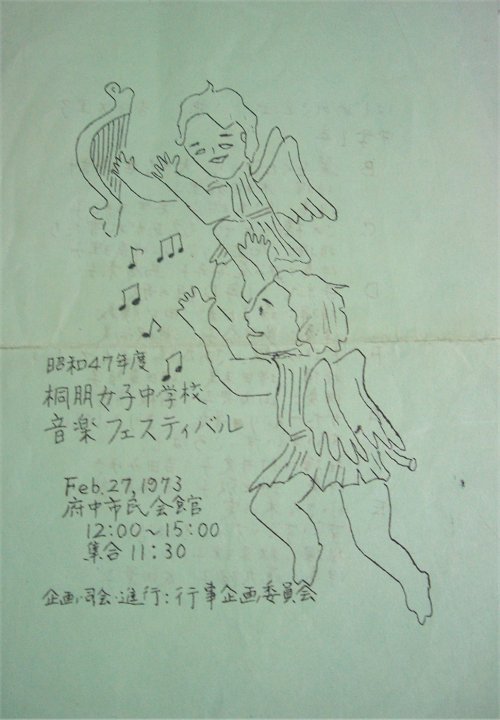 昭和47年度
桐朋女子中学校
音楽フェスティバル
Feb.27,1973
府中市民会館
12:00～15:00
集合 11:30
企画・司会・進行:行事企画委員会